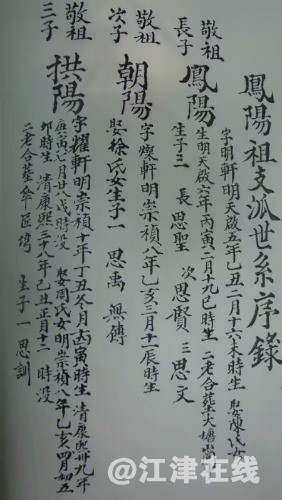 鳳陽祖支派世系序錄
敬祖
長子
鳳陽
字明軒明天啟五年乙丑二月十六未時生 娶陳氏
生明天啟六年丙寅二月十九巳時生 二老合葬大塘
生子三 長思聖 次思賢 三思文
敬祖
次子
朝陽
字燦軒明崇禎八年乙亥三月十一辰時生
娶徐氏女生子一 思禹 無傳
敬祖
三子
拱陽
字耀軒明崇禎十年丁丑冬月 寅時生 清康熙卅九年
庚寅七月廿八戌時没 娶周氏女明崇禎八年乙亥四月初五
卯時生 清康熙三十八年己丑正月十二 時没
二老合葬傘匠塆 生子一思訓
@江津在线